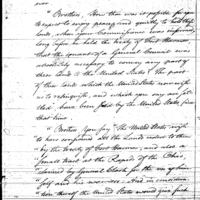 Brothers, Now then was it possible for you
to expect to enjoy peace, and quietly to hold these
lands, when your Commissioner was informed,
long before he held the treaty of Fort Harmar,
that the consent of a General Council was
absolutely necessary to convey any part of
these lands to the United States? The part
of these lands which the United States now wish
us to relinquish, and which you say are set-
tled, have been sold by the United States since
that time.
Brothers, You say "The United States wish
to have confirmed all the lands ceded to them
"by the treaty of Fort Harmar, and also a
"small tract at the Rapids of the Ohio,
"claimed by General Clark for the use of him-
"self and his warriors. And in considera-
"tion thereof the United States would give such